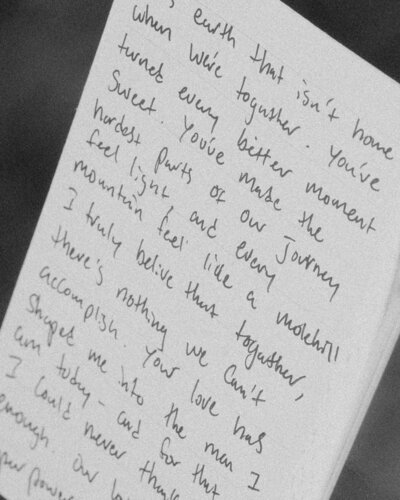 earth that isn't home
when we're togather. You've
turned every better moment
sweet. You've made the
hardest parts of our journey
feel light, and every
mountain feel like a molehill
I truly belive that togather,
there's nothing we can't
accomplish. Your love has
shaped me into the man I
am today - and for that
I could never thank
enough. Our
power